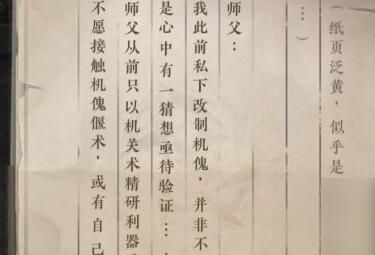 （纸页泛黄，似乎是
…）
师父：
我此前私下改制机傀，并非不
是心中有一猜想亟待验证…
师父从前只以机关术精研利器
不愿接触机傀偃术，或有自己